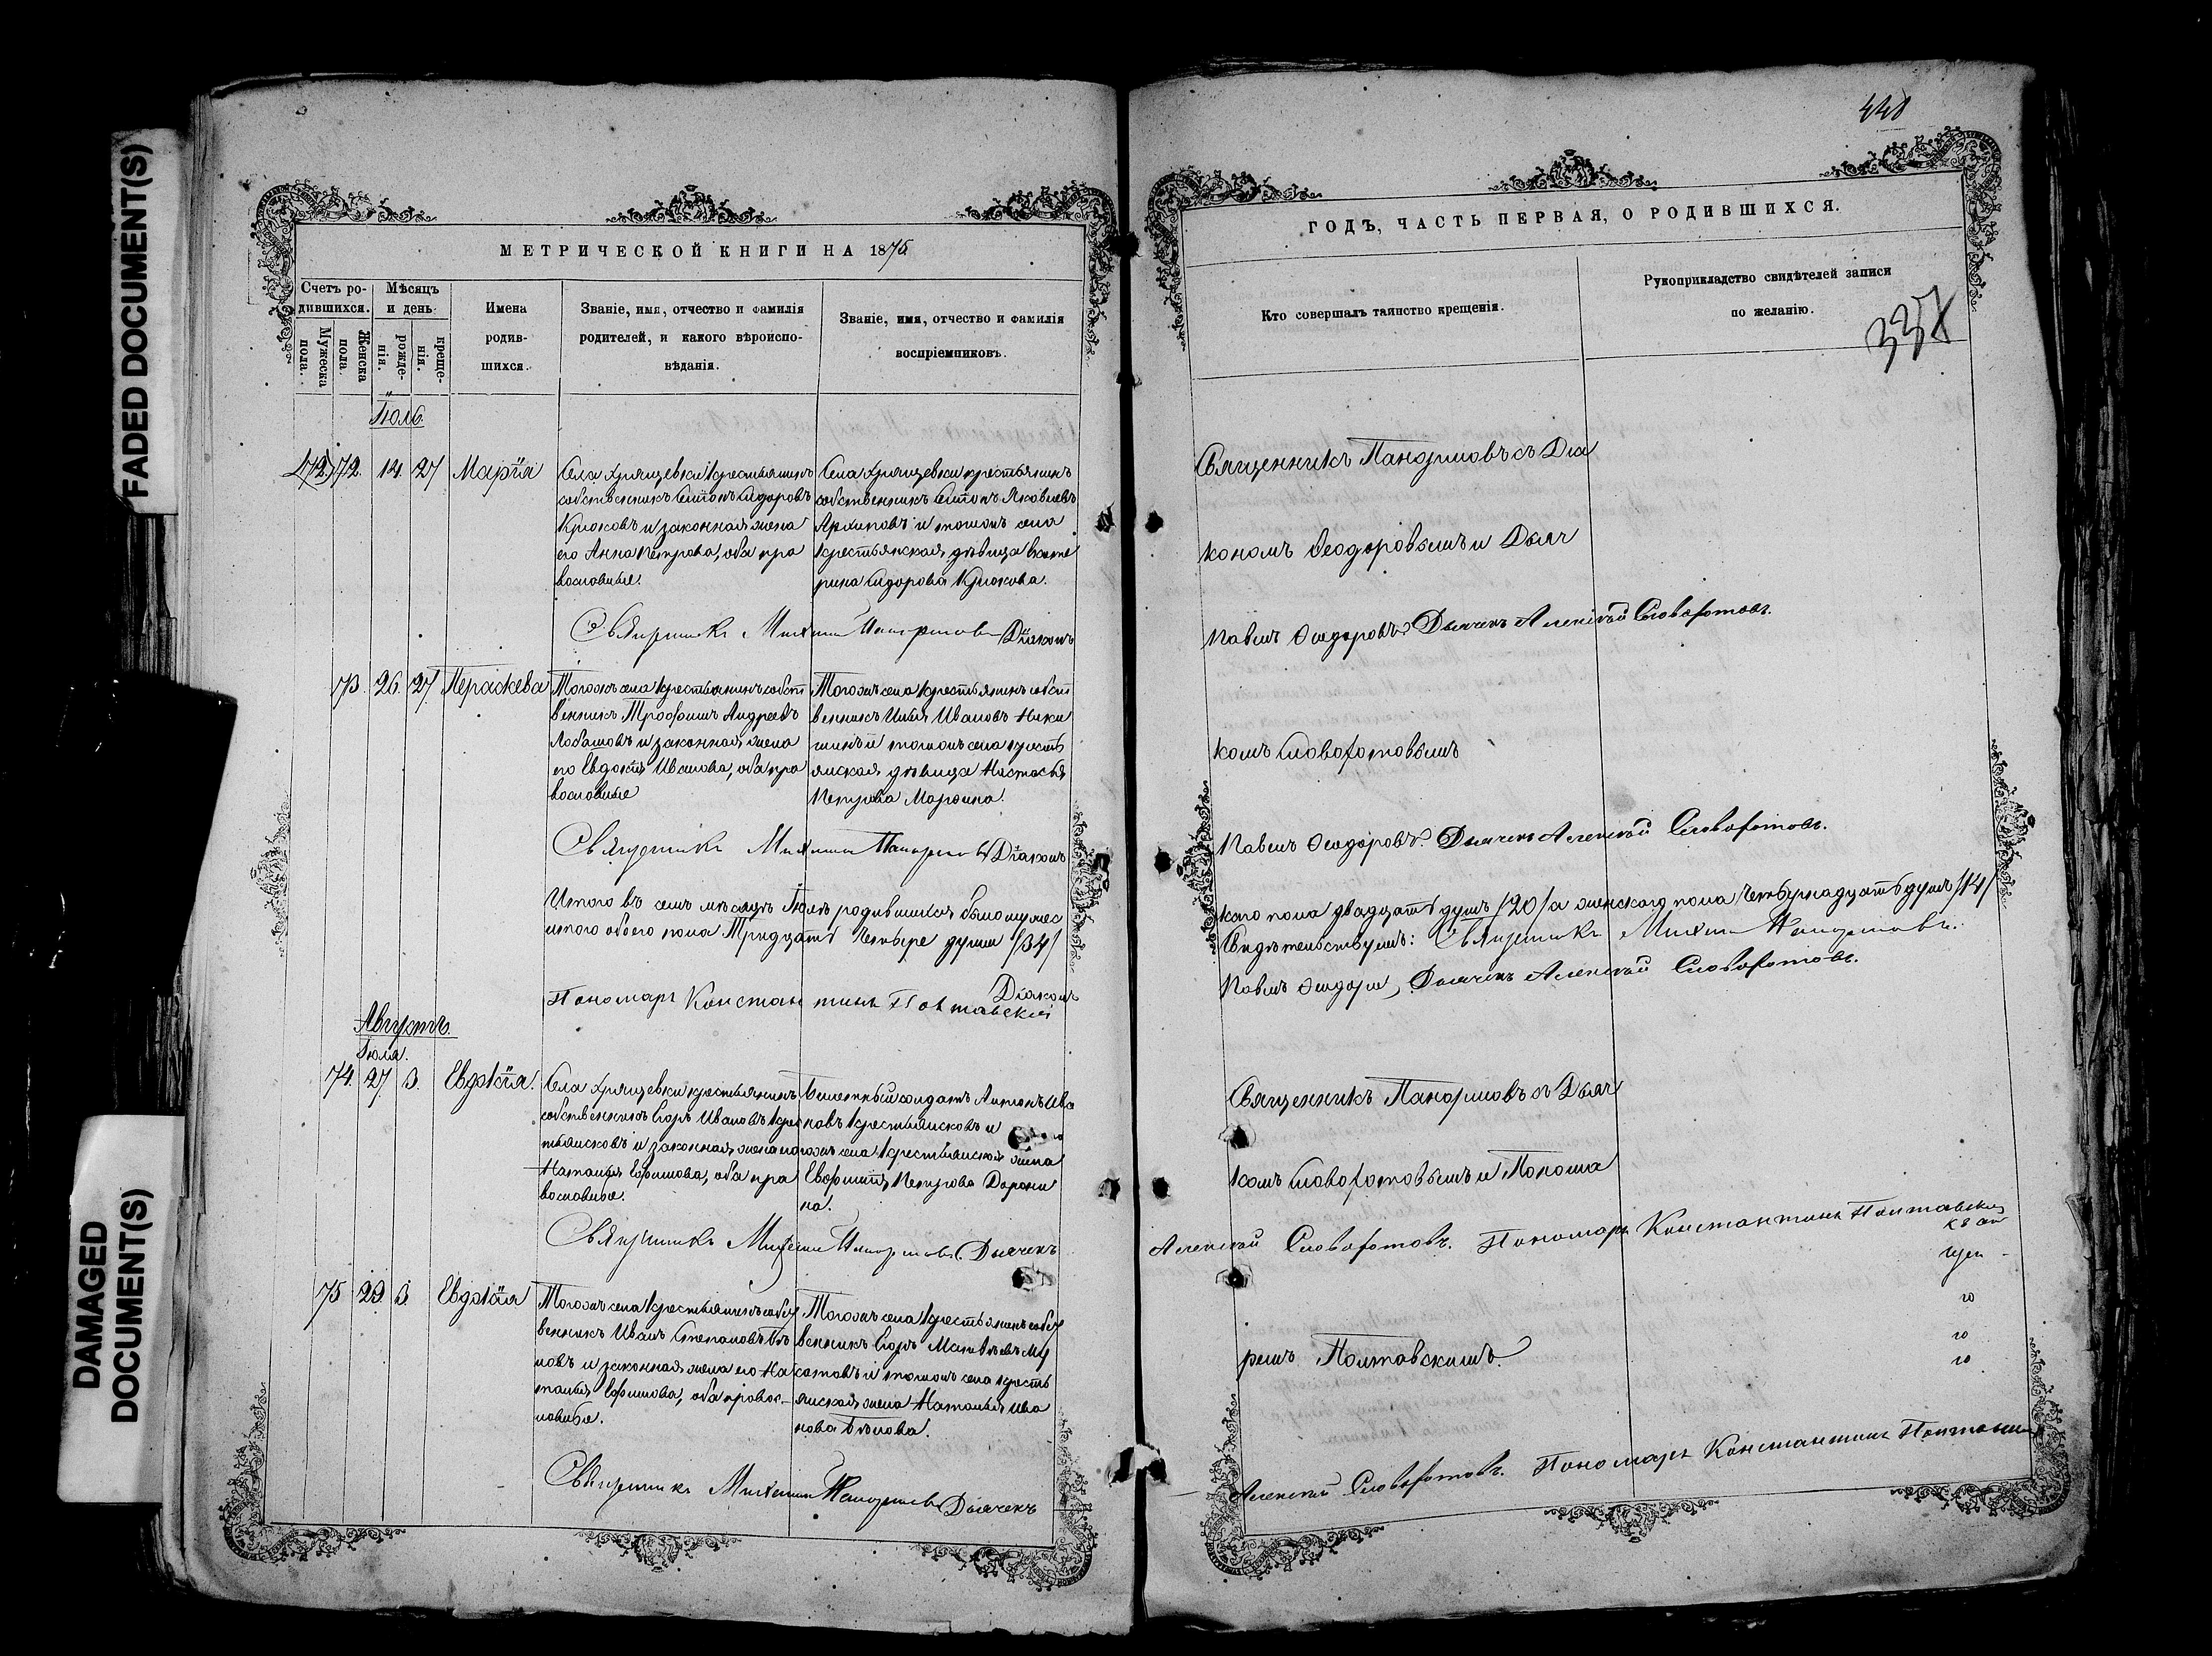 FADED DOCUMENT(S)
DAMAGED
DOCUMENT(S)
МЕТРИЧЕСКОЙ КНИГИ НА 1875
Счетъ ро-
дившихся.
Мужеска
пола.
Женска
пола.
Мѣсяцъ
и день
рожде-
нія.
креще-
нія.
Имена
родив-
шихся.
Званіе, имя, отчество и фамилія
родителей, и какого вѣроиспо-
вѣданія.
Званіе, имя, отчество и фамилія
воспріемниковъ.
Іюль
72 72. 14. 27 Марія
Села Хрящевки крестьянинъ
собственникъ Антонъ Сидоровъ
Крюковъ и законная жена
его Анна Петрова, оба пра
вославные.
Села Хрящевки крестьянинъ
собственникъ Яковлевъ
Архиповъ и тогожъ села
крестьянская дѣвица Екате
рина Сидорова Крюкова.
Священникъ Михаилъ Панормовъ Діаконъ
73. 26. 27. Параскева
Тогожъ села крестьянинъ собст
венникъ Трофимъ Андреевъ
Лобашовъ и законная жена
его Евдокія Иванова, оба пра
вославные
Тогожъ села крестьянинъ собст
венникъ Илья Ивановъ Ники
и тогожъ села кресть
янская дѣвица Настасья
Петрова
Священникъ Михаилъ Панормовъ Діаконъ
Итого въ семъ мѣсяцѣ Іюлѣ родившихся было мужес
итого обоего пола Тридцать четыре души /34/
Діаконъ
Пономарь Константинъ Полтавскій
Августъ.
Іюля.
74. 27. 3. Евдокія.
Села Хрящевки крестьянинъ
собственникъ Егоръ Ивановъ Крес
тьянсковъ и законная жена его
Наталья Ефимова, оба пра
вославные.
Билетный солдатъ Антонъ Ива
новъ Крестьянсковъ и
тогожъ села крестьянская жена
Евфимія Петрова Дорони
на.
Священникъ Михаилъ Панормовъ. Дьячекъ
75 29. 3. Евдокія
Тогожъ села крестьянинъ собст
венникъ Иванъ Степановъ Бѣ
ловъ и законная жена его На
талья Ефимова, оба правос-
лавные.
Тогожъ села крестьянинъ собст
венникъ Егоръ Матвѣевъ Му
сатовъ и тогожъ села кресть
янская жена Наталья Ива
нова Бѣлова.
Священникъ Михаилъ Панормовъ Дьячекъ
ГОДЪ, ЧАСТЬ ПЕРВАЯ, О РОДИВШИХСЯ.
Кто совершалъ таинство крещенія.
Рукоприкладство свидѣтелей записи
по желанію.
Священникъ Панормовъ съ Діа
кономъ Ѳеодоровымъ и Дьяч
Павелъ Ѳеодоровъ. Дьячекъ Алексѣй Словоротовъ.
комъ Словоротовымъ
Павелъ Ѳеодоровъ. Дьячекъ Алексѣй Словоротовъ.
каго пола двадцать душъ /20/ а женскаго пола четырнадцать душъ /14/
Свидѣтельствуемъ: Священникъ Михаилъ Панормовъ.
Павелъ Ѳеодоровъ, Дьячекъ Алексѣй Словоротовъ.
Священникъ Панормовъ съ Дьяч
комъ Словоротовымъ и Понома
Алексѣй Словоротовъ. Пономарь Константинъ Полтавскій
ремъ Полтавскимъ.
Алексѣй Словоротовъ. Пономарь Константинъ Полтавскій